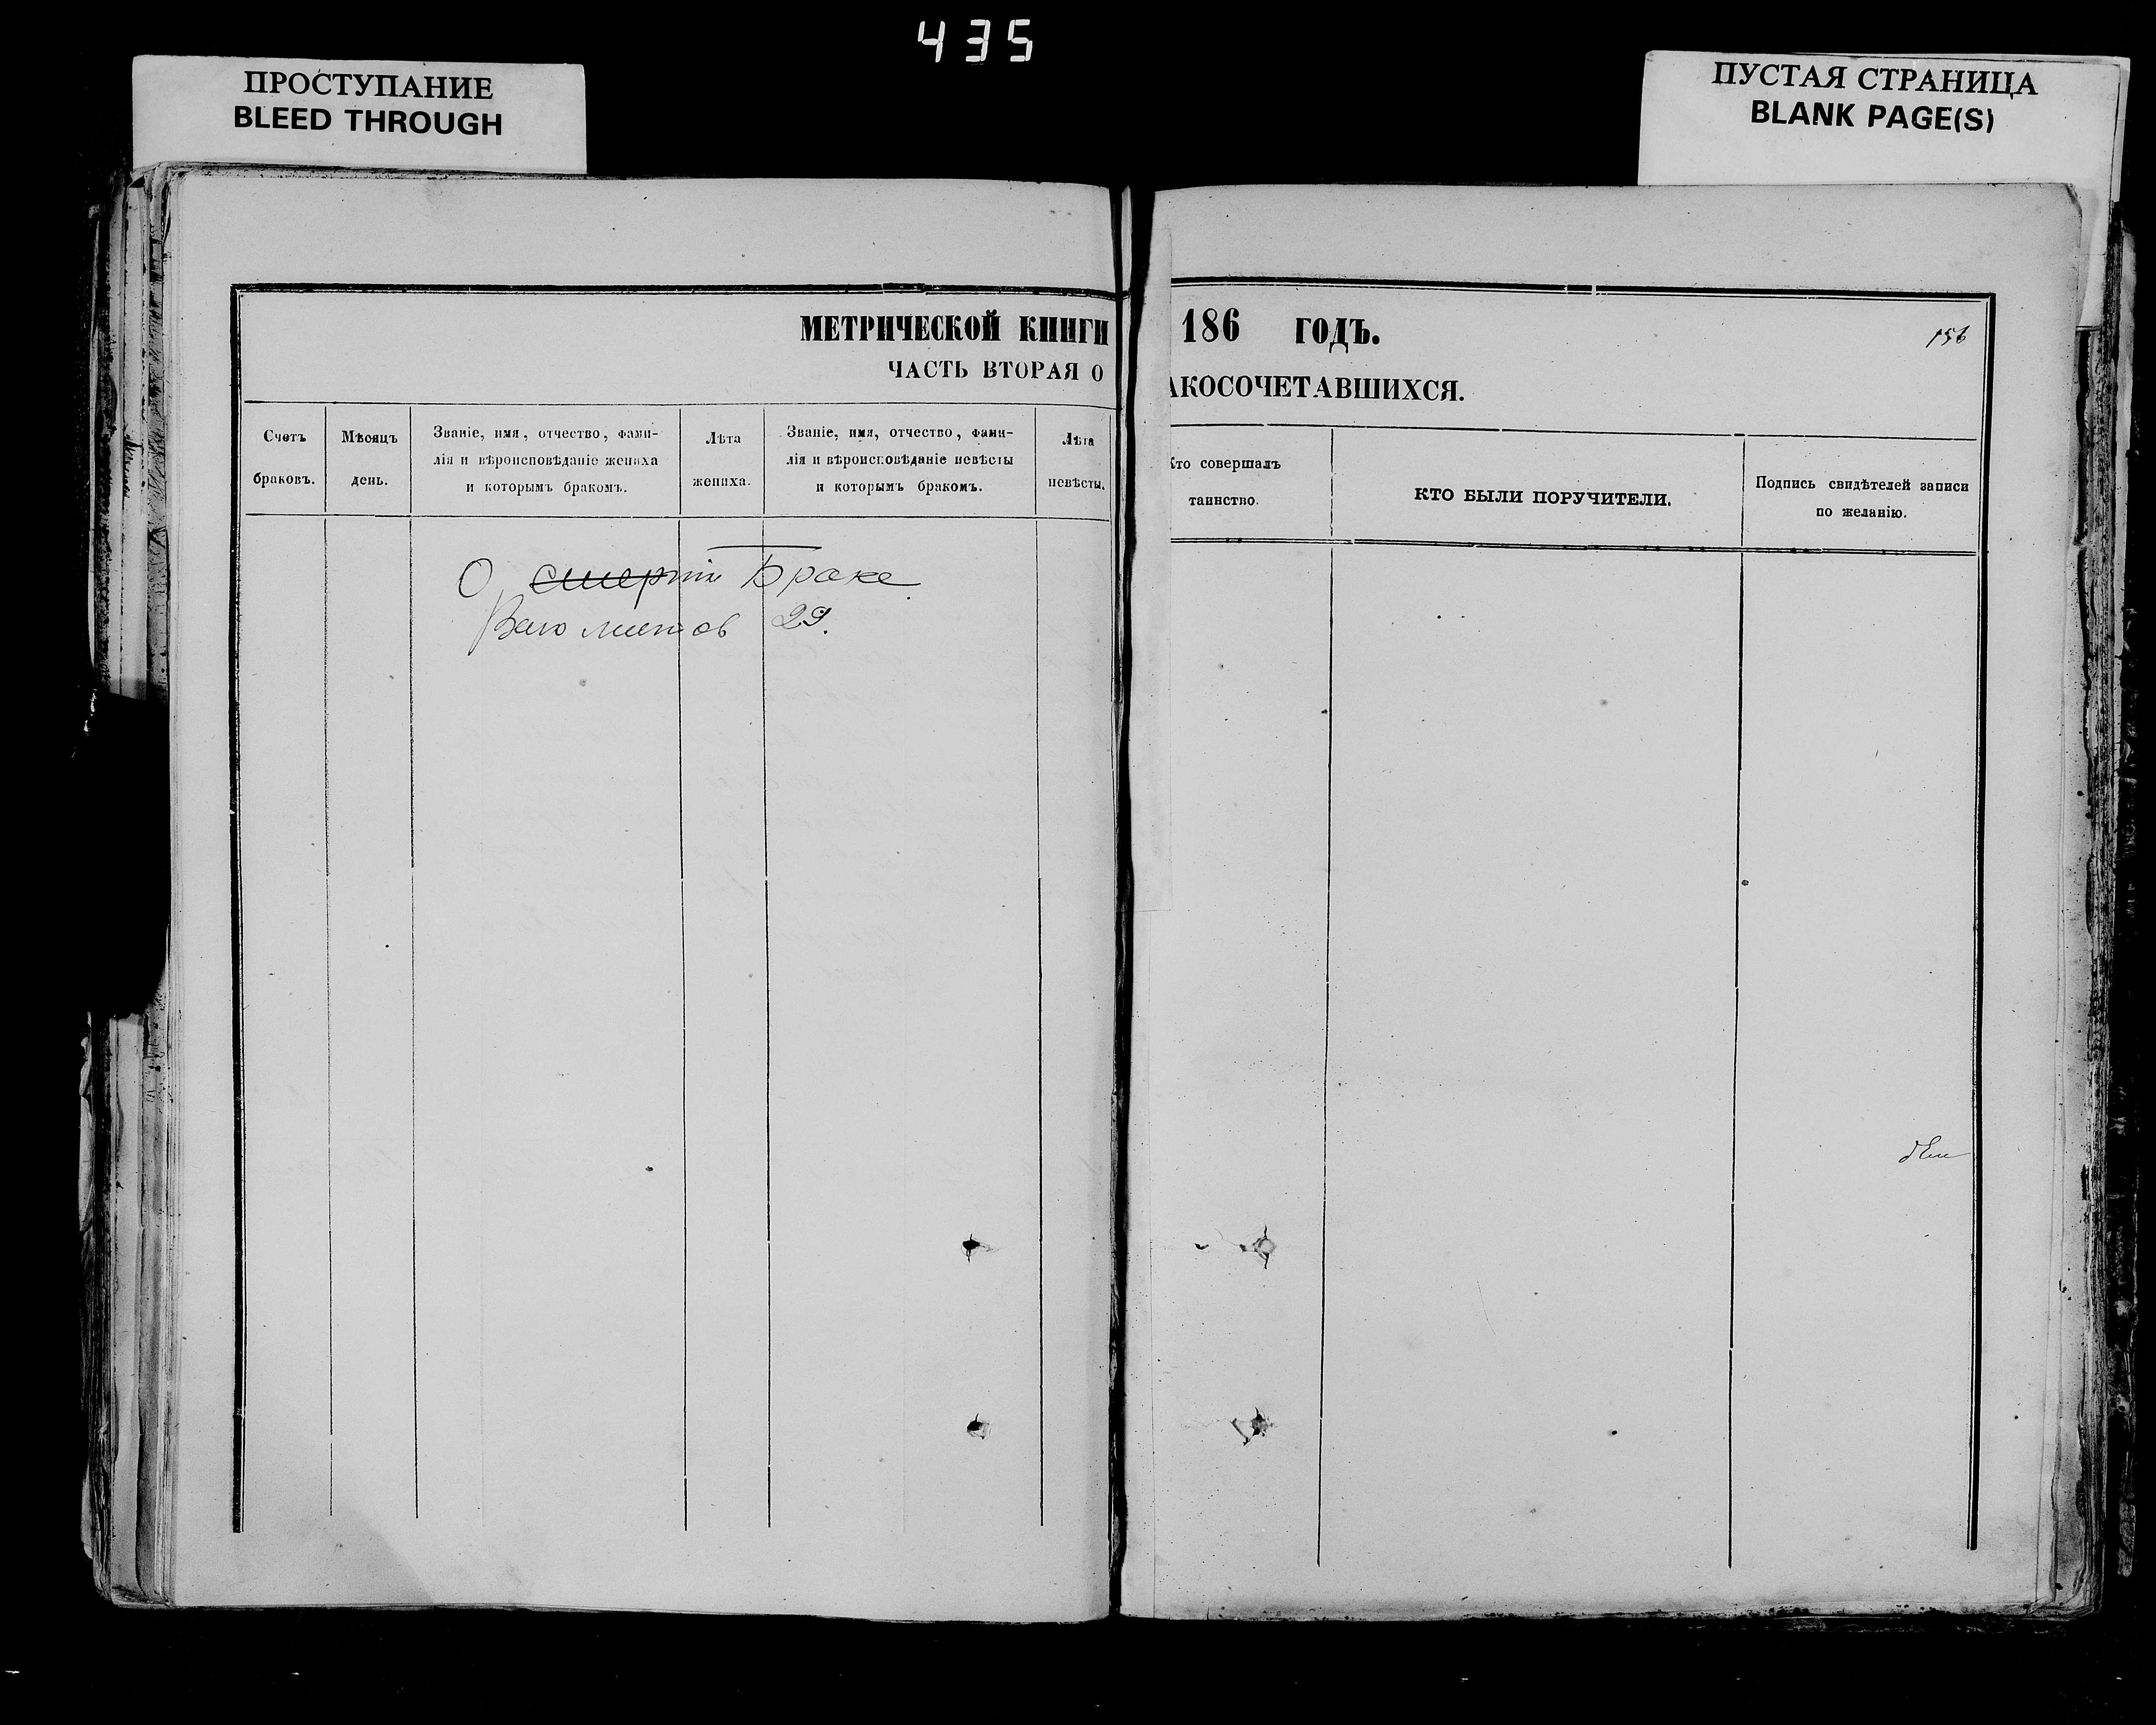 435
ПРОСТУПАНИЕ
BLEED THROUGH
ПУСТАЯ СТРАНИЦА
BLANK PAGE(S)
МЕТРИЧЕСКОЙ КНИГИ
ЧАСТЬ ВТОРАЯ О
Счетъ браковъ.
Мѣсяцъ день.
Званіе, имя, отчество, фами-
лія и вѣроисповѣданіе жениха
и которымъ бракомъ.
Лѣта жениха.
Званіе, имя, отчество, фами-
лія и вѣроисповѣданіе невѣсты
и которымъ бракомъ.
Лѣта невѣсты.
О смертіи Браке
листов 29.
186 ГОДЪ.
156
АКОСОЧЕТАВШИХСЯ.
Кто совершалъ
таинство.
КТО БЫЛИ ПОРУЧИТЕЛИ.
Подпись свидѣтелей записи
по желанію.